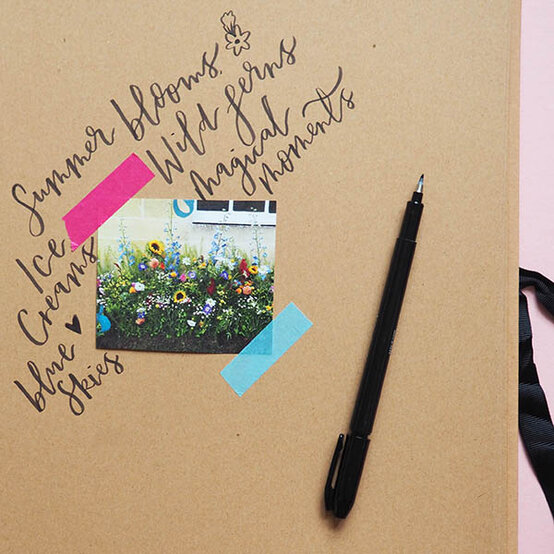 Summer blooms.
Wild ferns
Magical
moments
Ice
Creams
blue
Skies